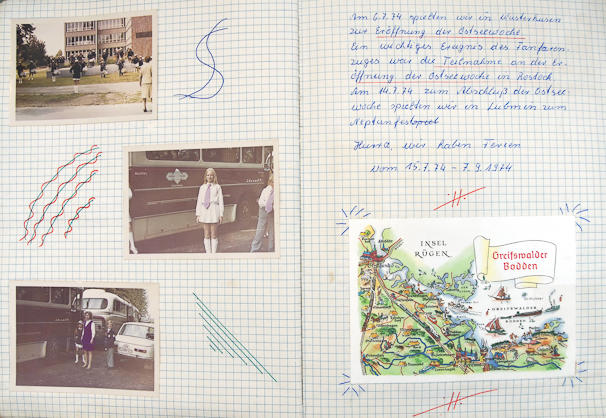 Am 6.7.74 spielten wir in Wusterhusen
zur Eröffnung der Ostseewoche
Ein wichtiges Ereignis des Fanfaren-
zuges war die Teilnahme an der Er-
öffnung der Ostseewoche in Rostock
Am 14.7.74 zum Abschluß der Ostsee-
woche spielten wir in Lubmin zum
Neptunfest
Hurra, wir haben Ferien
vom 15.7.74 - 7.9.1974
INSEL
RÜGEN
Greifswalder
Bodden
GREIFSWALDER
BODDEN